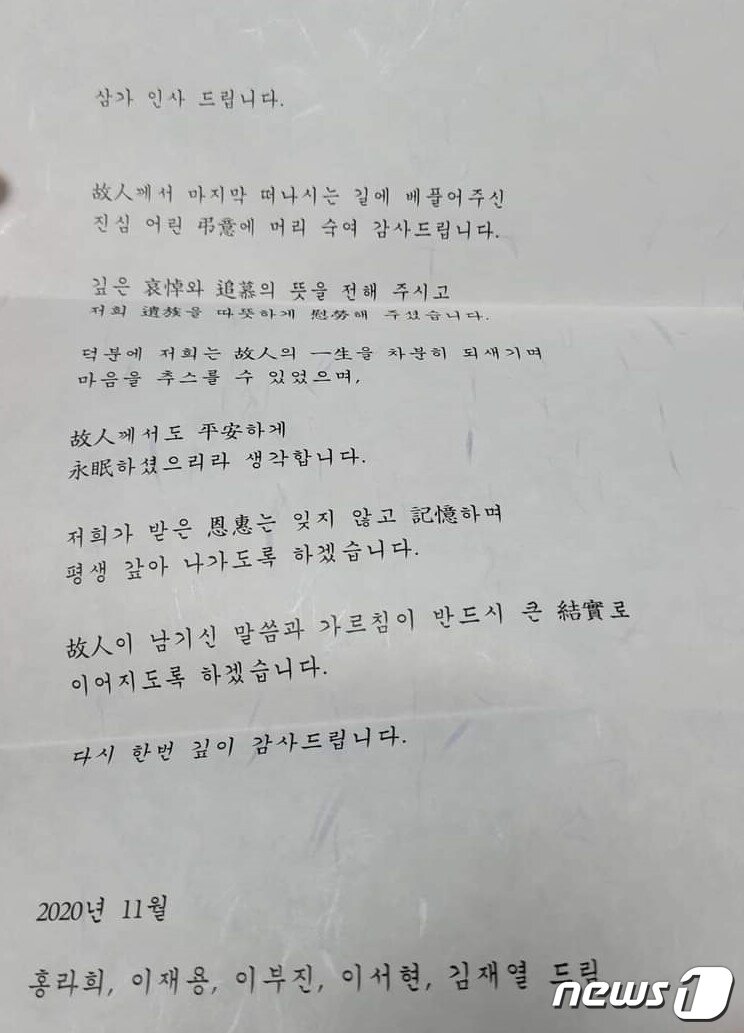 삼가 인사 드립니다.
故人께서 마지막 떠나시는 길에 베풀어주신
진심 어린 弔意에 머리 숙여 감사드립니다.
깊은 哀悼와 追慕의 뜻을 전해 주시고
저희 遺族을 따뜻하게 慰勞해 주셨습니다.
덕분에 저희는 故人의 一生을 차분히 되새기며
마음을 추스를 수 있었으며,
故人께서도 平安하게
永眠하셨으리라 생각합니다.
저희가 받은 恩惠는 잊지 않고 記憶하며
평생 갚아 나가도록 하겠습니다.
故人이 남기신 말씀과 가르침이 반드시 큰 結實로
이어지도록 하겠습니다.
다시 한번 깊이 감사드립니다.
2020년 11월
홍라희, 이재용, 이부진, 이서현, 김재열 드림
news1